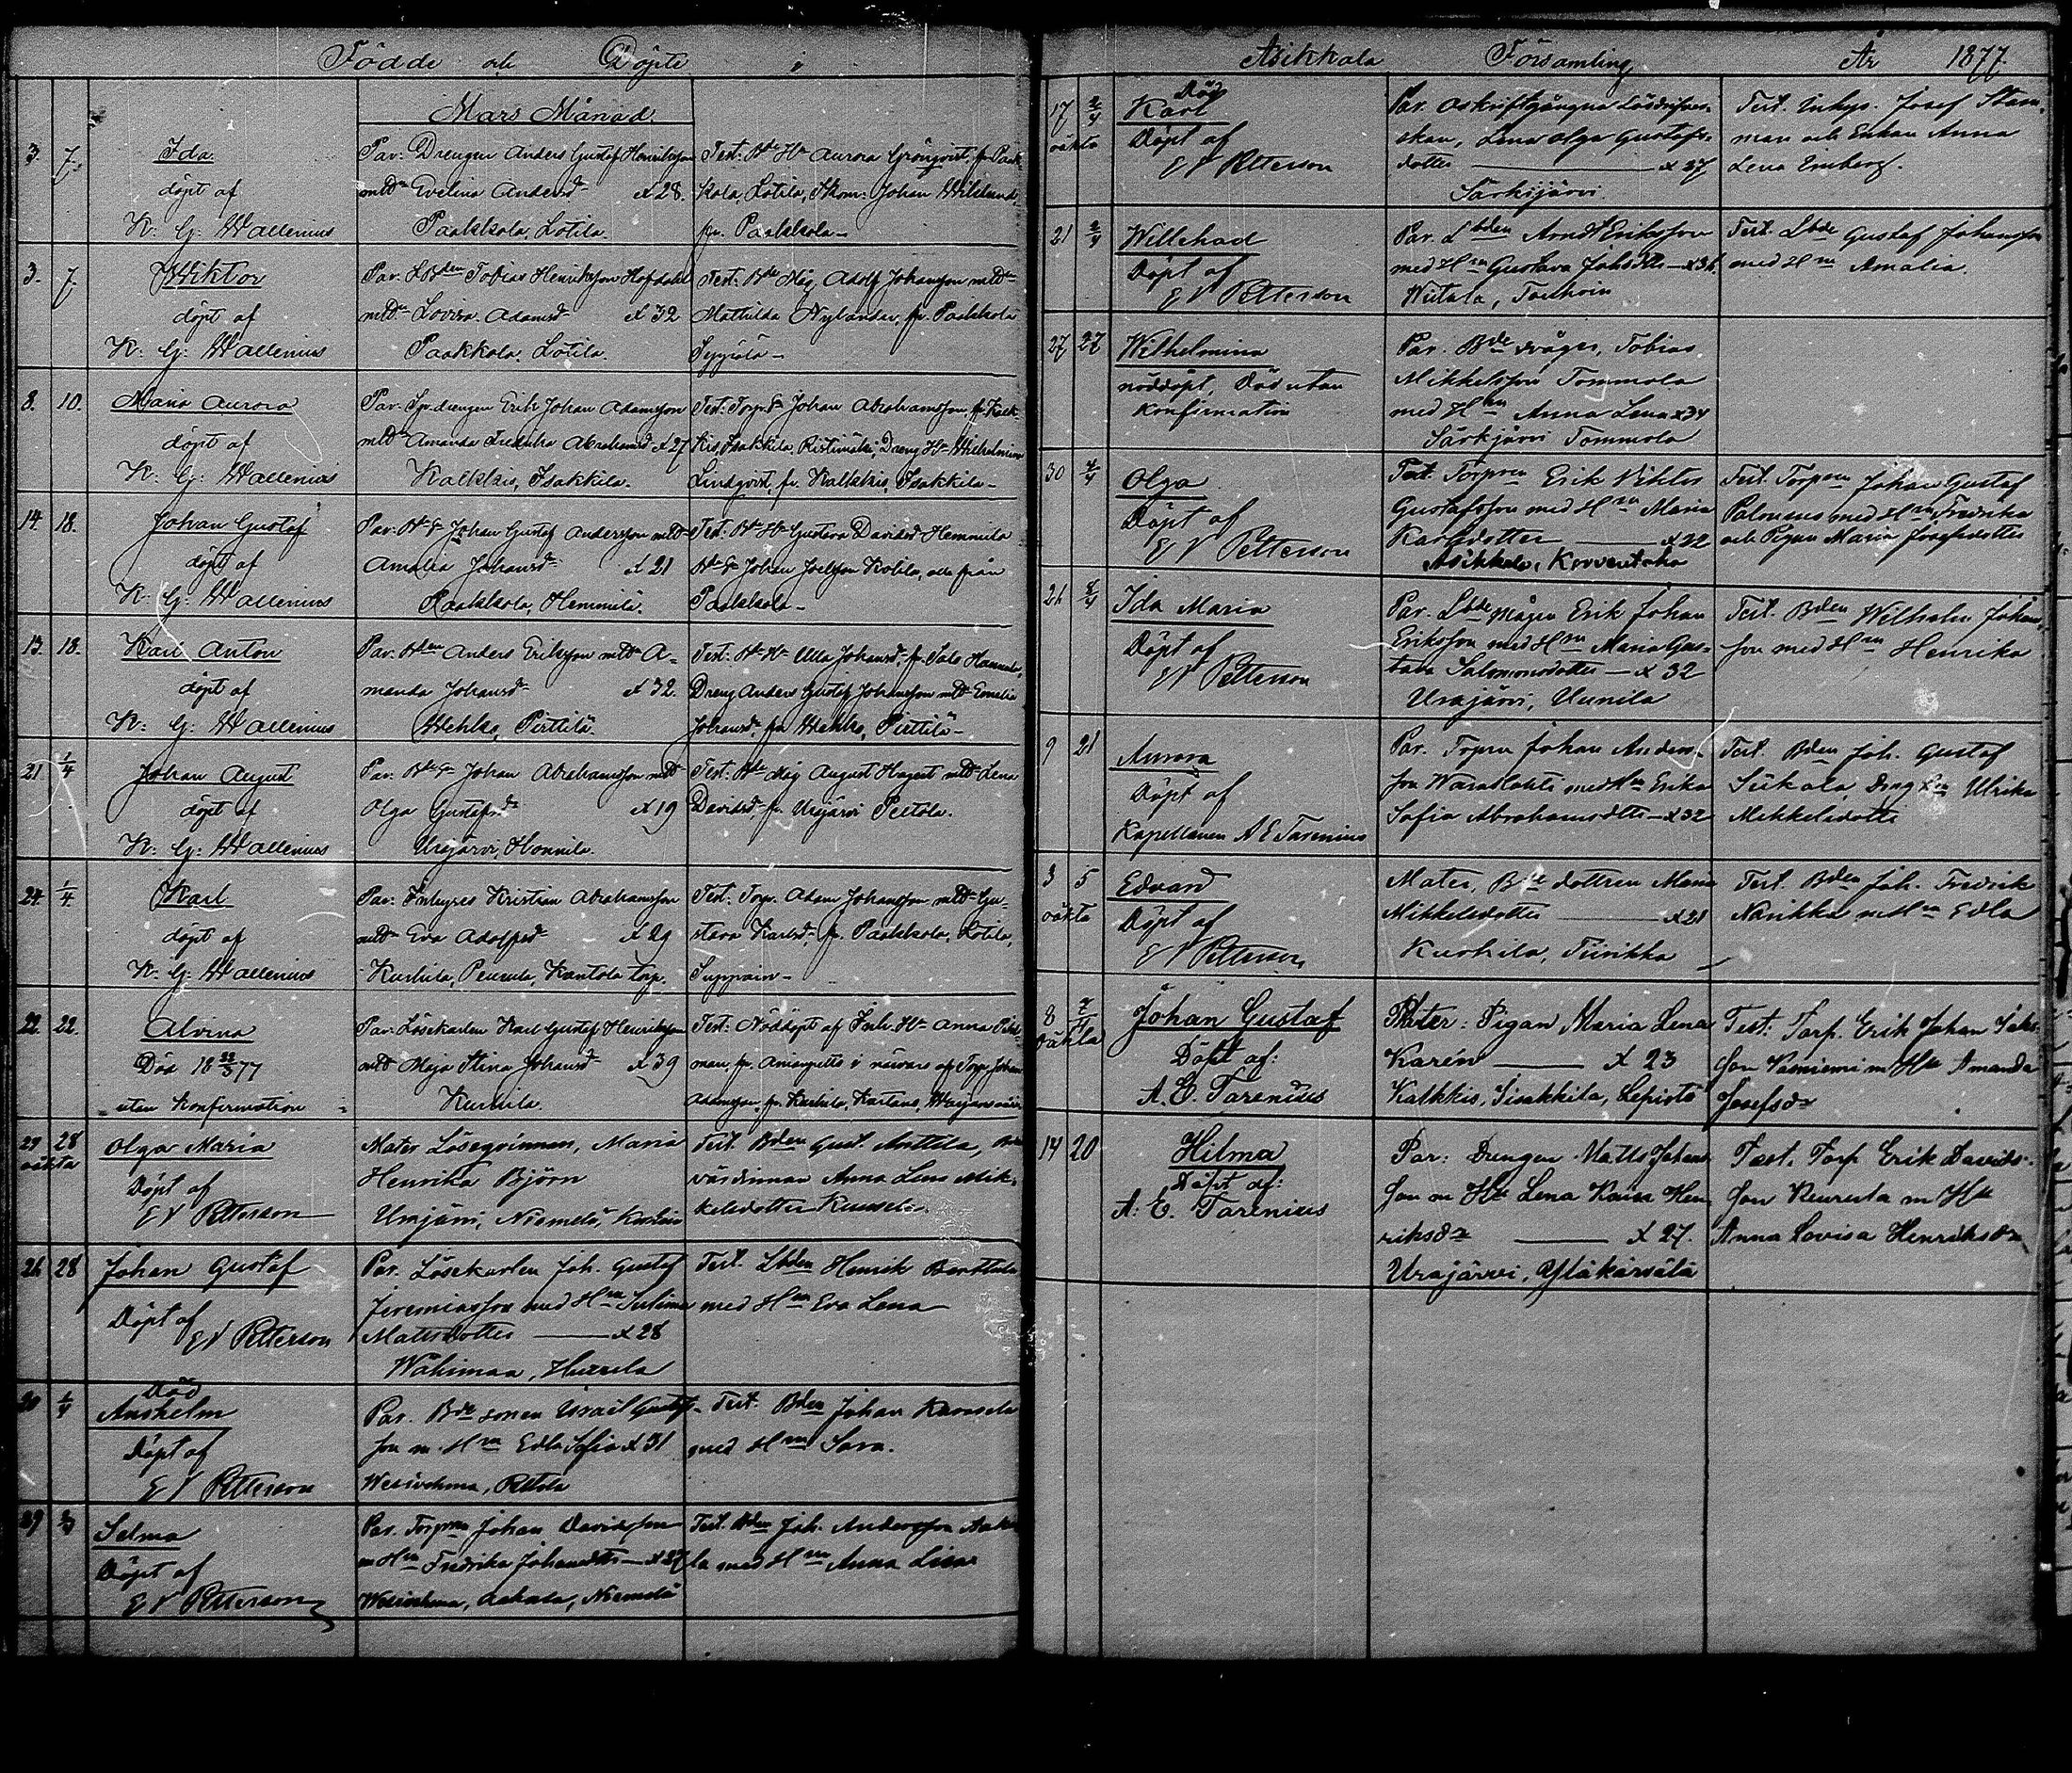 Födde och Döpte i
Mars Månad
3. 7.
Ida
döpt af
K: G: Wallenius
Par: Drengen Anders Gustaf Henriksson
mtd Evelina Andersd x 28.
Paakkola, Lotila.
Test: Hn Aurora Grönqvist, fr. Paak
kola, Lotila, Johan Wiklund
fr. Paakkola
3. 7.
Wiktor
döpt af
K: G: Wallenius
Par. Tobias Henriksson Hofdahl
Lovisa Adamsd x 32
Paakkola, Lotila.
Test: Bde Måg Adolf Johansson mtd
Mathilda Nylander, fr. Paakkola
Seppälä
8. 10.
Maria Aurora
döpt af
K: G: Wallenius
Par: drengen Erik Johan Adamsson
Amanda Fredrika Abrahamsd x 27
Kalkkis, Isakkila.
Test: Johan Abrahamsson, fr Kalk
kis, Isakkila, Ristimäki, Dreng Hn Wilhelmina
Lindqvist, fr. Kalkkis, Isakkila
14. 18.
Johan Gustaf
döpt af
K: G: Wallenius
Par: Johan Gustaf Andersson mtd
Amalia Johansd x 21
Paakkola, Hemmilä.
Test: Gustava Davidsd Hemmilä
Johan Joelsson Kotila, alla från
Paakkola
13. 18.
Karl Anton
döpt af
K: G: Wallenius
Par: Anders Eriksson mtd A-
manda Johansd x 32.
Wehko, Pirttilä.
Test: Ulla Johansd, fr.
Dreng Anders Gustaf Johansson mtd
Johansd, fr Wehko, Pirttilä
21 1/4
Johan August
döpt af
K: G: Wallenius
Par: Johan Abrahamsson mtd
Olga Gustafsd x 19
Urajärvi, Honnila.
Test: Bde Måg August Hagert mtd Lena
Davidsd, fr. Urajärvi Peltola.
24. 1/4
Karl
döpt af
K: G: Wallenius
Par: Inhyses Kristian Abrahamsson
Eva Adolfsd x 29
Kurhila, Peurula, Kantola torp.
Test: Torp. Adam Johansson mtd Gu-
stava Karlsd, fr. Paakkola, Lotila,
22. 22.
Alvina
Död 18 22/3 77
utan konfirmation
Par: Lösekarlen Karl Gustaf Henriksson
mtd Maja Stina Johansd x 39
Kurhila.
Test: Nöddöpt af Inh. Hn Anna
i närvaro af Torp. Johan
Adamsson, fr. Kurhila,
27 28
oäkta
Olga Maria
Döpt af
E V Petterson
Mater Lösegvinnan, Maria
Henrika Björn
Urajärvi, Niemelä,
Test. Bden Gust. Anttila,
värdinnan Anna Lena Mik-
kelsdotter
26 28
Johan Gustaf
Döpt af
E V Petterson
Par. Lösekarlen Joh. Gustaf
Jeremiasson med Hn
Mattsdotter x 28
Wähimaa, Hurrila
Test. Lbden Henrik Berttula
med Hn Eva Lena
30 1/4
Död
Anshelm
Döpt af
E V Petterson
Par. Bde sonen Israil Gustaf-
son m. Hn Edla Sofia x 31
Wesivehmaa, Peltola
Test. Bden Johan
med Hn Sara.
29
Selma
Döpt af
E V Petterson
Par. Torpren Johan Davidsson
m Hn Fredrika Johansdtr x 27
Wesivehmaa, Niemelä
Test. Bden Joh. Andersson
la med Hn Anna Lisa
Asikkala Församling År 1877
17 2/4
oäkta
Död
Karl
Döpt af
E V Petterson
Par. Oskriftgångna
skan, Lena Olga Gustafs-
dotter x 27
Särkijärvi
Test. Inhys. Josef Stam-
man och Enkan Anna
Lena Enberg.
21 2/4
Willehad
Döpt af
E V Petterson
Par. Lbden Arndt Eriksson
med Hn Gustava Johsdtr x 31
Wiitala,
Test. Lbde Gustaf Johansson
med Hn Amalia.
27 27
Wilhelmina
nöddöpt, Död utan
konfirmation
Par. Bde svåger, Tobias
Mikkelsson Tommola
med Hn Anna Lena x 34
Särkjärvi Tommola
30 4/4
Olga
Döpt af
E V Petterson
Test. Torpren Erik Viktor
Gustafsson med Hn Maria
Karlsdotter x 22
Asikkala,
Test. Torpren Johan Gustaf
Palonius med Hn Fredrika
och Pigan Maria Josefsdotter
21 8/4
Ida Maria
Döpt af
E V Petterson
Par. Lbde mågen Erik Johan
Eriksson med Hn Maria Gus-
tava Salomonsdotter x 32
Urajärvi, Uunila
Test. Bden Wilhelm Johans
son med Hn Henrika
9 21
Aurora
Döpt af
Kapellanen A E Tarenius
Par. Torpren Johan Anders-
son med Hn Erika
Sofia Abrahamsdtr x 32
Test. Bden Joh. Gustaf
Ulrika
Mikkelsdotter
3 5
oäkta
Edvard
Döpt af
E V Petterson
Mater, Bde dottren Maria
Mikkelsdotter x 21
Kurhila, Tiirikka
Test. Bden Joh. Fredrik
Narikka m Hn Edla
8 7/4
oäkta
Johan Gustaf
Döpt af:
A. E. Tarenius
Mater: Pigan Maria Lena
Karén x 23
Kalkkis, Iisakkila, Lepistö
Test: Torp. Erik Johan
son Vainiemi m Hn Amanda
Josefsdr
14 20
Hilma
Döpt af:
A: E. Tarenius
Par: Drengen Matts Johans
son m Hn Lena Kaisa Hen
riksdr x 27.
Urajärvi, Yläkärsälä
Test. Torp Erik Davids-
son m Hn
Anna Lovisa Henriksdr